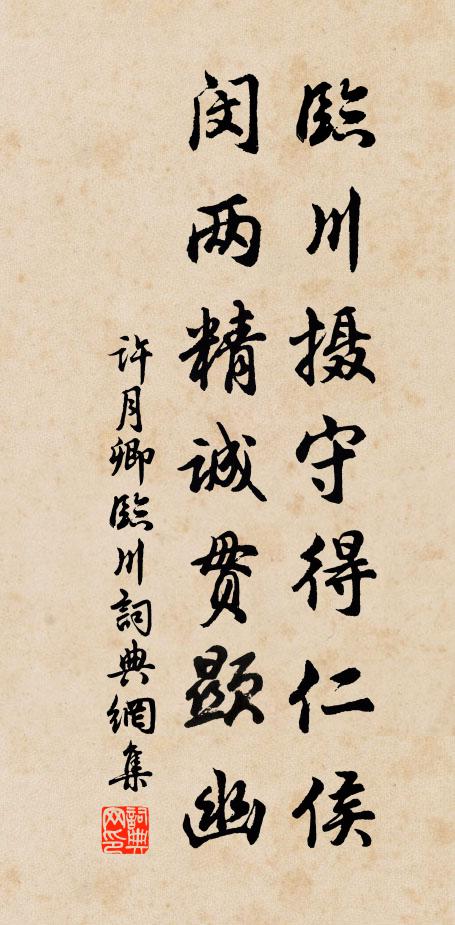 臨川摄守得仁侯
闵两精诚贯顕幽
許月卿臨川詞典網集
詞典网印